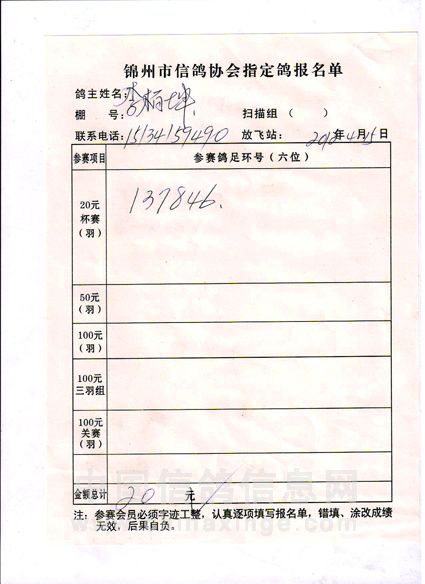 锦州市信鸽协会指定鸽报名单
鸽主姓名:
棚 号: 扫描组 ( )
联系电话:15134159490 放飞站: 2012年4月15日
参赛项目 参赛鸽足环号(六位)
20元
杯赛
(羽)
137846.
50元
(羽)
100元
(羽)
100元
三羽组
100元
关赛
(羽)
金额总计 20 元
注: 参赛会员必须字迹工整, 认真逐项填写报名单, 错填、涂改成绩
无效, 后果自负。
中国信鸽信息网